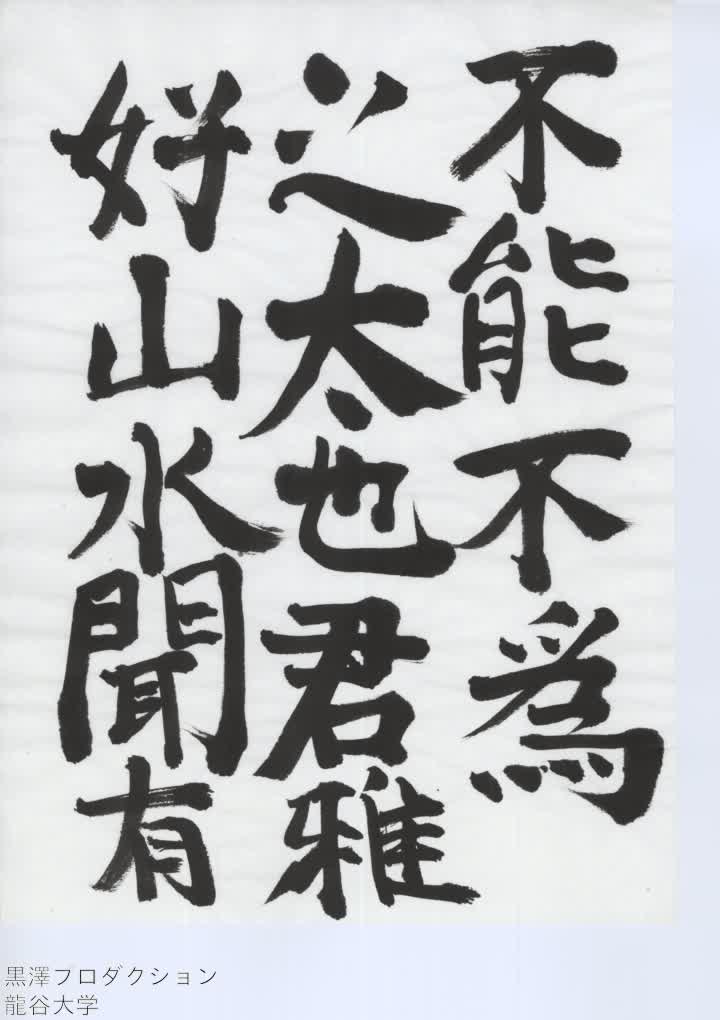 不能不為
之太也君雅
好山水聞有
黒澤プロダクション
龍谷大学